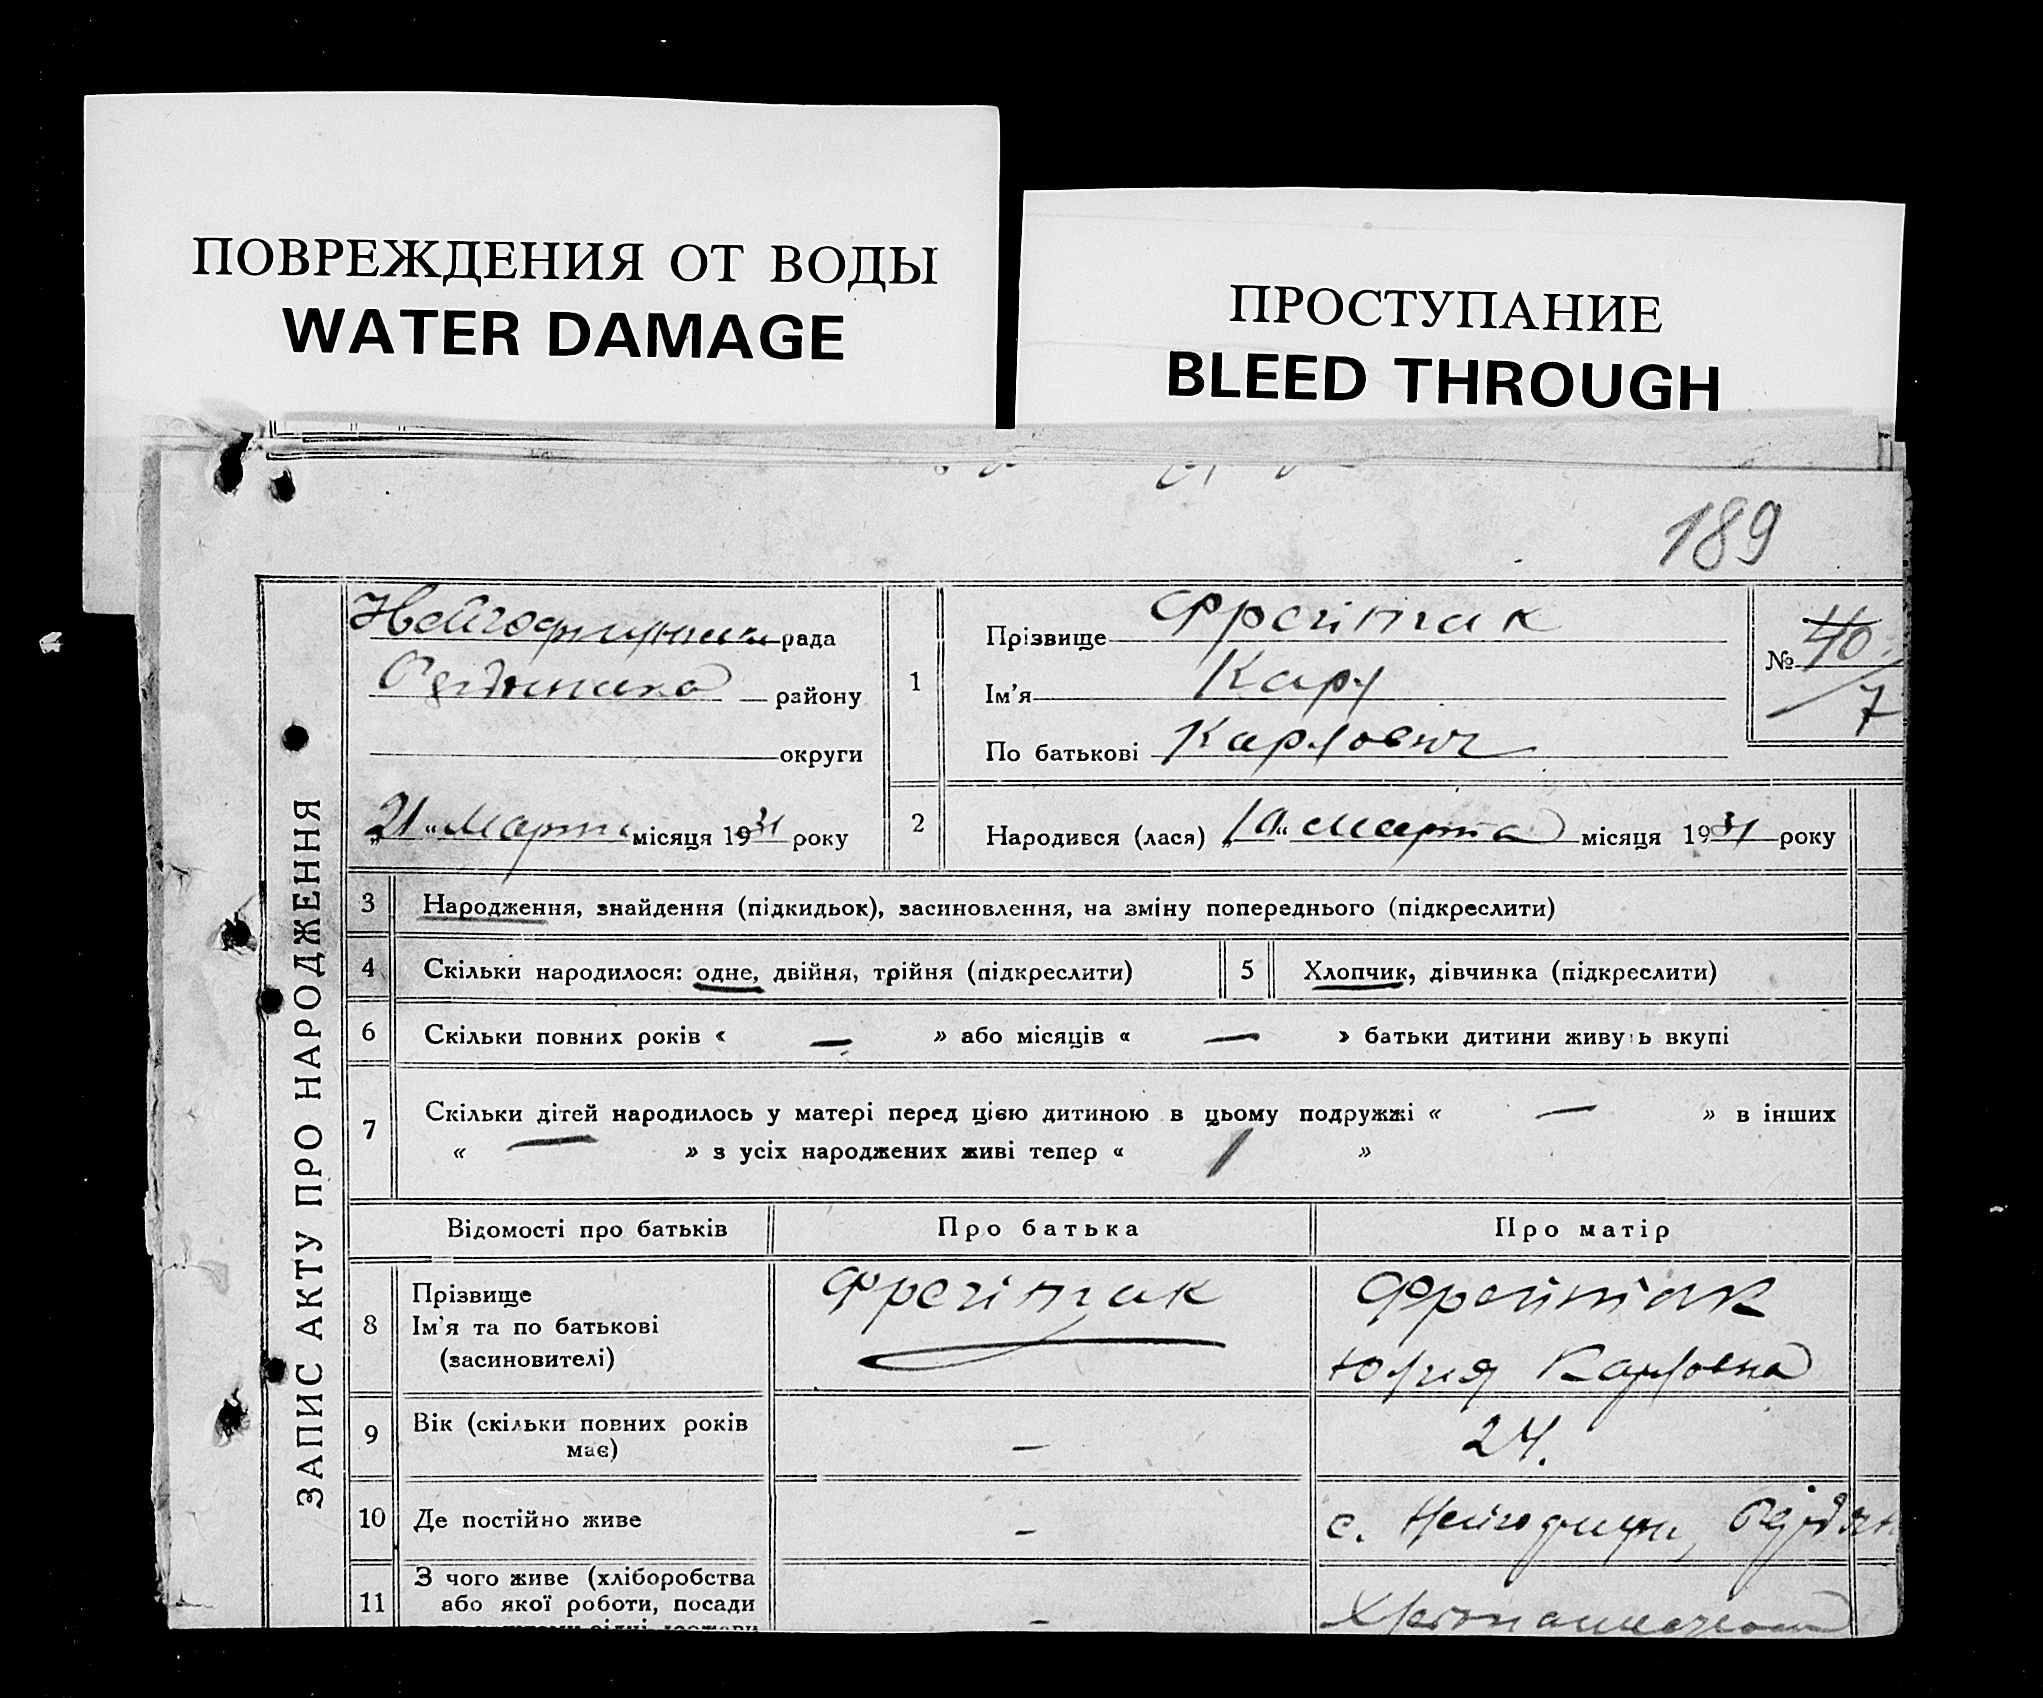 ПОВРЕЖДЕНИЯ ОТ ВОДЫ
WATER DAMAGE
ПРОСТУПАНИЕ
BLEED THROUGH
189
ЗАПИС АКТУ ПРО НАРОДЖЕННЯ
рада
району
округи
„21“ Марта місяця 1931 року
1
Прізвище Фрейтак
Ім'я Карл
По батькові Карлович
№ 40/7
2
Народився (лася) „10“ марта місяця 1931 року
3 Народження, знайдення (підкидьок), засиновлення, на зміну попереднього (підкреслити)
4 Скільки народилося: одне, двійня, трійня (підкреслити)
5 Хлопчик, дівчинка (підкреслити)
6 Скільки повних років « — » або місяців « — » батьки дитини живуть вкупі
7 Скільки дітей народилось у матері перед цією дитиною в цьому подружжі « — » в інших
« — » з усіх народжених живі тепер « 1 »
Відомості про батьків Про батька Про матір
8
Прізвище Фрейтак Фрейтак
Ім'я та по батькові
(засиновителі) Юлия Карловна
9 Вік (скільки повних років
має) — 24.
10 Де постійно живе — с.
11 З чого живе (хліборобства
або якої роботи, посади —